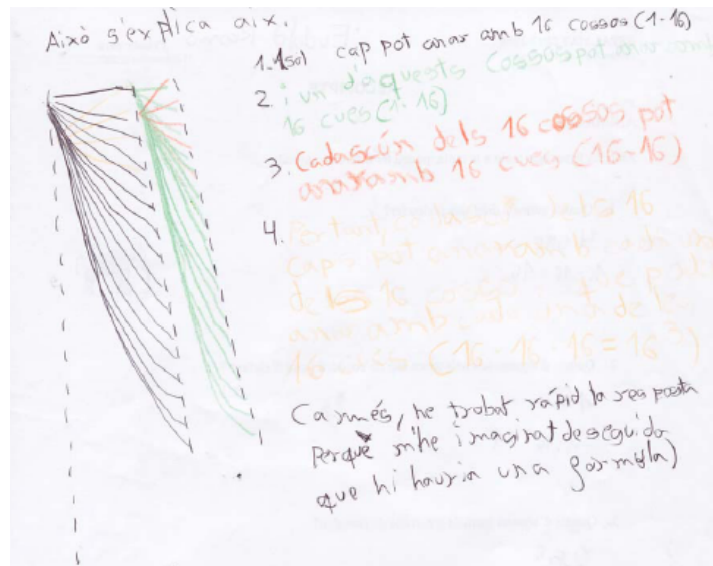 Això s'explica aix.
1. 1 sol cap pot anar amb 16 cossos (1-16)
2. i un d'aquests cossos pot anar amb
16 cues (1-16)
3. Cadascún dels 16 cossos pot
anar amb 16 cues (16-16)
4. Per tant, cadascún dels 16
caps pot anar amb cadascún
dels 16 cossos i pot
anar amb cadascuna de les
16 cues (16·16·16=16³)
(a més, he trobat rápid la resposta
Perquè m'he imaginat de seguida
que hi hauria una formula)